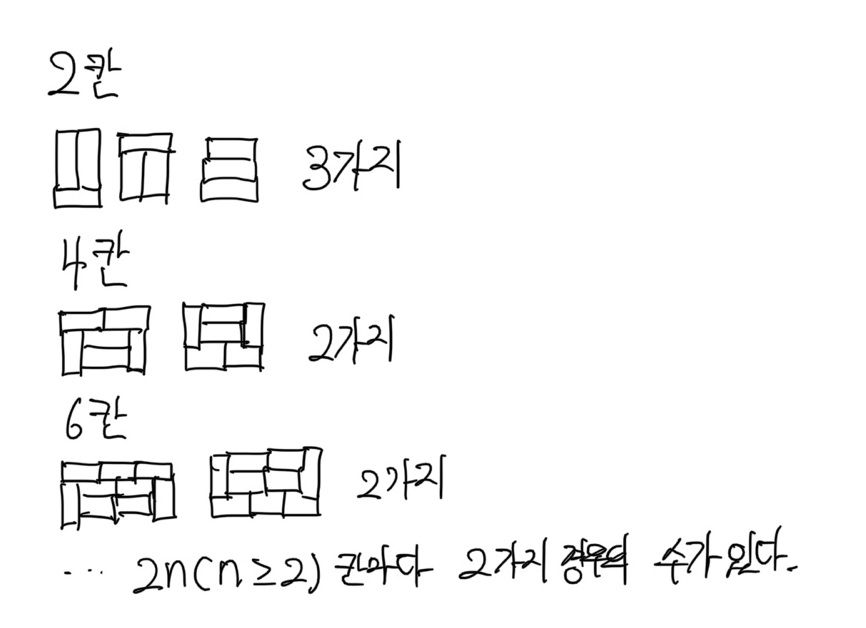 2칸
3가지
4칸
2가지
6칸
2가지
... 2n(n≥2) 칸마다 2가지 경우의 수가 있다.